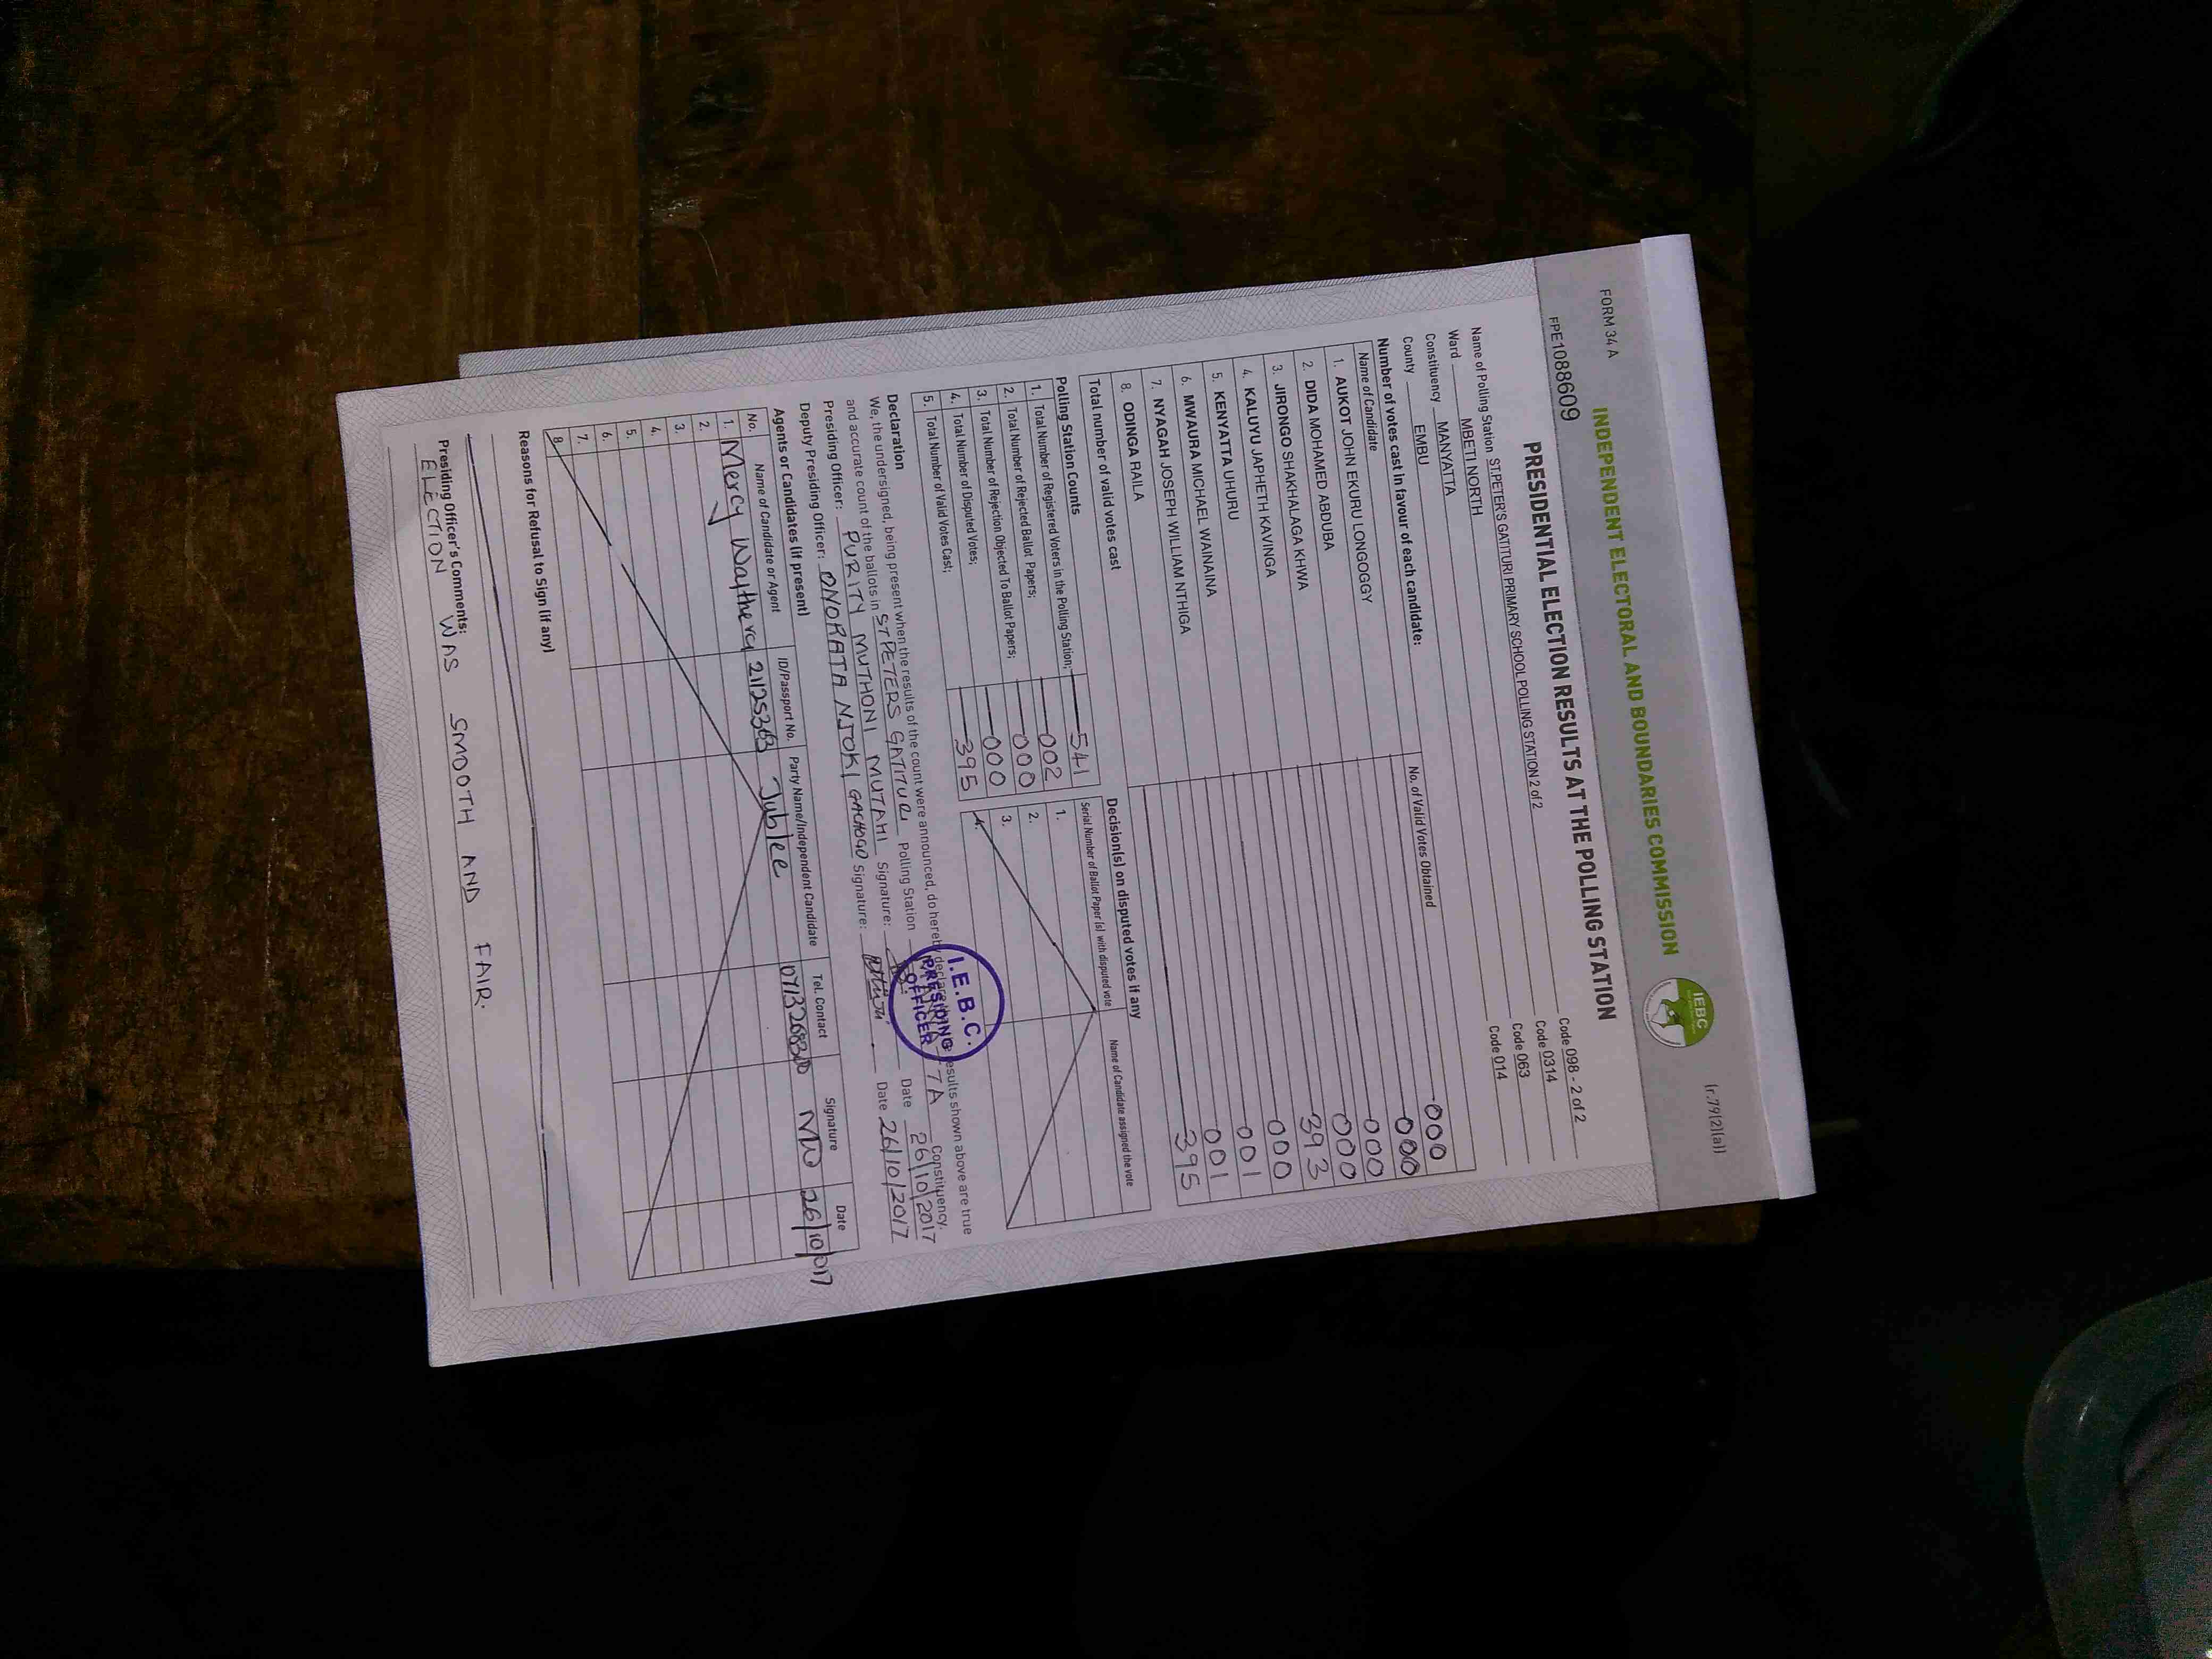 FORM 34 A
(r.79(2)(a))
INDEPENDENT ELECTORAL AND BOUNDARIES COMMISSION
IEBC
FPE1088609
PRESIDENTIAL ELECTION RESULTS AT THE POLLING STATION
Name of Polling Station ST.PETER'S GATITURI PRIMARY SCHOOL POLLING STATION 2 of 2 Code 098 - 2 of 2
Ward MBETI NORTH Code 0314
Constituency MANYATTA Code 063
County EMBU Code 014
Number of votes cast in favour of each candidate:
Name of Candidate No. of Valid Votes Obtained
1. AUKOT JOHN EKURU LONGOGGY 000
2. DIDA MOHAMED ABDUBA 000
3. JIRONGO SHAKHALAGA KHWA 000
4. KALUYU JAPHETH KAVINGA 000
5. KENYATTA UHURU 393
6. MWAURA MICHAEL WAINAINA 000
7. NYAGAH JOSEPH WILLIAM NTHIGA 001
8. ODINGA RAILA 001
Total number of valid votes cast 395
Polling Station Counts
1. Total Number of Registered Voters in the Polling Station; 541
2. Total Number of Rejected Ballot Papers; 002
3. Total Number of Rejection Objected To Ballot Papers; 000
4. Total Number of Disputed Votes; 000
5. Total Number of Valid Votes Cast; 395
Decision(s) on disputed votes if any
Serial Number of Ballot Paper (s) with disputed vote Name of Candidate assigned the vote
1.
2.
3.
4.
Declaration
We, the undersigned, being present when the results of the count were announced, do hereby declare results shown above are true
and accurate count of the ballots in ST PETERS GATITURI Polling Station Constituency.
Presiding Officer: PURITY MUTHONI MUTAHI Signature: Date 26/10/2017
Deputy Presiding Officer: ONORATA NJOKI GACHOGO Signature: Date 26/10/2017
I.E.B.C.
PRESIDING
OFFICER
Agents or Candidates (if present)
No. Name of Candidate or Agent ID/Passport No. Party Name/Independent Candidate Tel. Contact Signature Date
1. Mercy Waithera Jublee MW 26/10/017
2.
3.
4.
5.
6.
7.
8.
Reasons for Refusal to Sign (if any)
Presiding Officer's Comments: WAS SMOOTH AND FAIR.
ELECTION